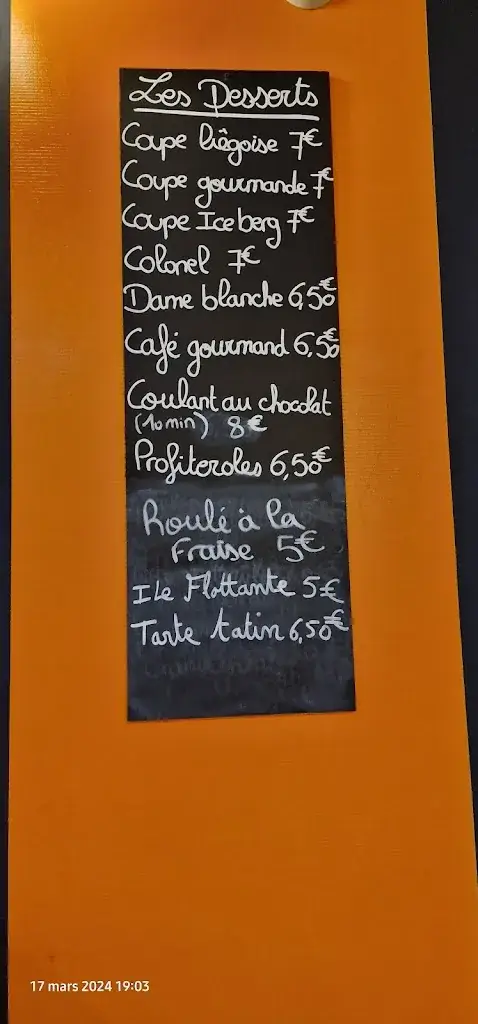 Les Desserts
Coupe liêgoise 7€
Coupe gourmande 7€
Coupe Iceberg 7€
Colonel 7€
Dame blanche 6,50€
Café gourmand 6,50€
Coulant au chocolat
(10min) 8€
Profiteroles 6,50€
Roulé à la
Fraise 5€
Ile Flottante 5€
Tarte tatin 6,50€
17 mars 2024 19:03